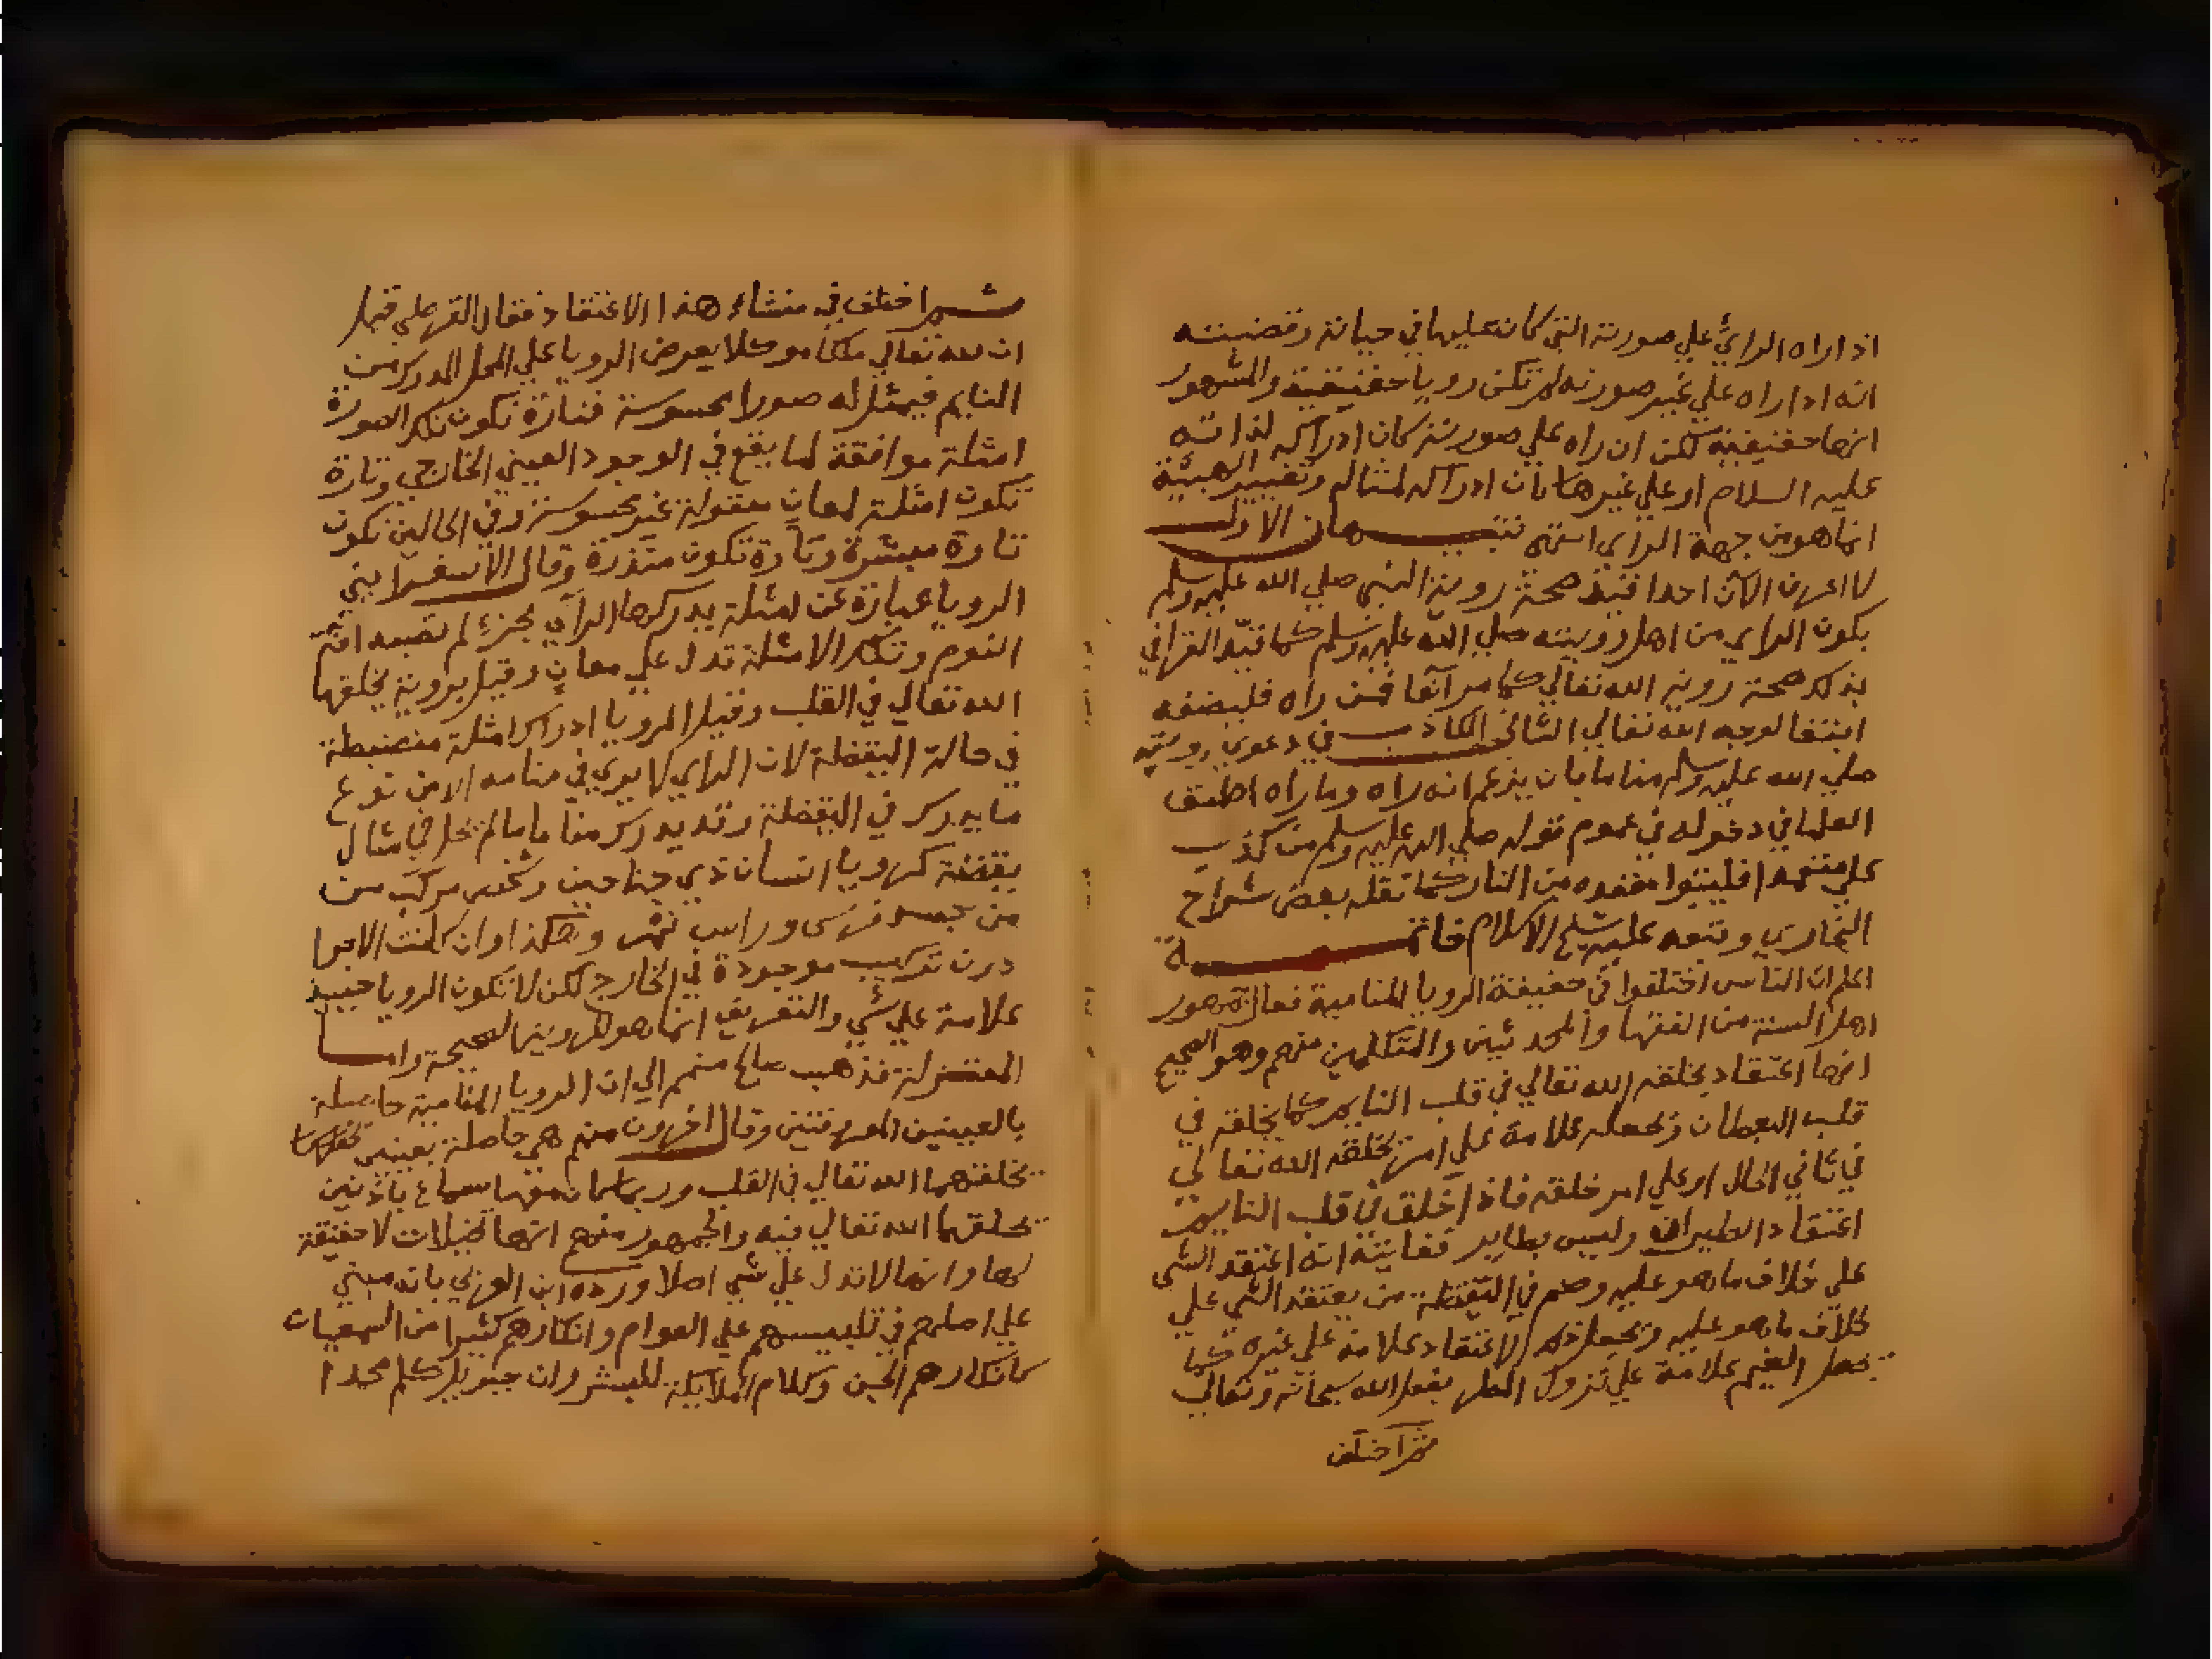 اذا راه الرائي علي صورته التي كان عليها في حياته وقضيته
انه اذا راه علي غير صورته لم تكن رويا حقيقية والمشهور
انها حقيقية لكن ان راه علي صورته كان ادراكه لذاته
عليه السلام او علي غيرها كان ادراكه لمثاله وتغيير الهيئة
انما هو من جهة الراي انتهي تنبيهان الاول
لا اعرف الان احدا قيد صحة روية النبي صلي الله عليه وسلم
بكون الراي من اهل رويته صلي الله عليه وسلم كما قيد القرافي
بذلك صحة روية الله تعالي كما مر آنفا فمن راه فليضفه
ابتغا لوجه الله تعالي الثاني الكاذب في دعوي رويته
صلي الله عليه وسلم مناما بان يزعم انه راه وما راه اطبق
العلما في دخوله في عموم قوله صلي الله عليه وسلم من كذب
علي متعمدا فليتبوا مقعده من النار كما نقله بعض شراح
البخاري وتبعه عليه شيخ الاسلام خاتمة
اعلم ان الناس اختلفوا في حقيقة الرويا المنامية فقال جمهور
اهل السنة من الفقها والمحدثين والمتكلمين منهم وهو الصحيح
انها اعتقاد يخلقه الله تعالي في قلب النايم كما يخلقه في
قلب اليقظان ويجعله علامة علي امر يخلقه الله تعالي
في ثاني الحال او علي امر خلقه فاذا خلق في قلب النايم
اعتقاد الطيران وليس بطاير فغايته انه اعتقد الشي
علي خلاف ماهو عليه وكم في اليقظة من يعتقد الشي علي
خلاف ماهو عليه ويجعل ذلك الاعتقاد علامة علي غيره كما
يجعل الغيم علامة علي نزول المطر بفعل الله سبحانه وتعالي
ثم اختلف
ثم اختلف في منشاء هذا الاعتقاد فقال القرطبي قيل
ان لله تعالي ملكا موكلا يعرض الرويا علي المحل المدرك من
النايم فيمثل له صورا محسوسة فتارة تكون تلك الصورة
امثلة موافقة لما يقع في الوجود العيني الخارجي وتارة
تكون امثلة لمعان معقولة غير محسوسة وفي الحالين تكون
تارة مبشرة وتارة تكون منذرة وقال الاسفرايني
الرويا عبارة عن امثلة يدركها الراي بجزء لم تصبه افة
النوم وتلك الامثلة تدل علي معان وقيل بروية يخلقها
الله تعالي في القلب وقيل الرويا ادراك امثلة منضبطة
في حالة اليقظة لان الراي لا يري في منامه الا من نوع
ما يدرك في اليقظة وقد يدرك مناما ما لم يحل في مثال
يقظة كرويا انسان ذي جناحين وشخص مركب من
من جسد فرس وراس وهكذا وان كانت الاجزا
دون تركيب موجودة في الخارج لكن لا تكون الرويا حينيذ
علامة علي شي والتعريف انما هو للروية الصحيحة واما
المعتزلة فذهب صالح منهم الي ان الرويا المنامية حاصلة
بالعينين المعروفتين وقال اخرون منهم هي حاصلة بعينين
يخلقهما الله تعالي في القلب وربما كان معها سماع باذنين
يخلقهما الله تعالي فيه والجمهور منهم انها تخيلات لا حقيقة
لها وانها لا تدل علي شي اصلا ورده ابن العربي بانه مبني
علي اصلهم في تلبيسهم علي العوام وانكارهم كثيرا من السمعيات
كانكارهم الجن وكلام الملايكة للبشر وان جبريل كلم محمدا